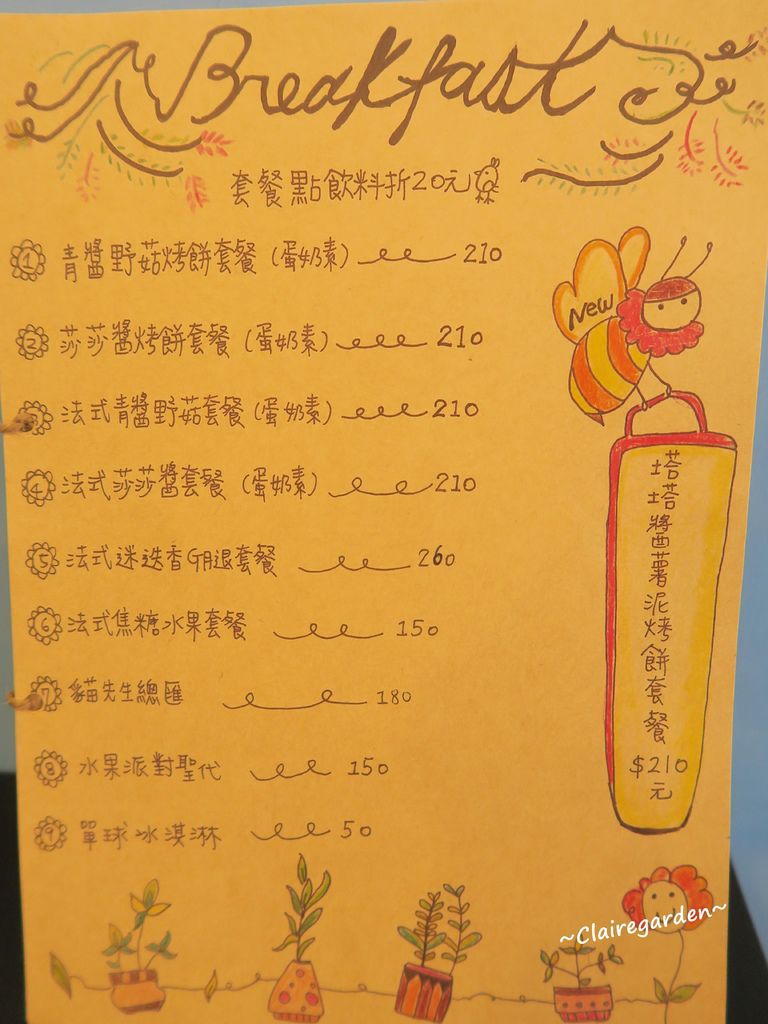 Breakfast
套餐點飲料折20元
1 青醬野菇烤餅套餐(蛋奶素) 210
2 莎莎醬烤餅套餐(蛋奶素) 210
3 法式青醬野菇套餐(蛋奶素) 210
4 法式莎莎醬套餐(蛋奶素) 210
5 法式迷迭香雞腿套餐 260
6 法式焦糖水果套餐 150
7 貓先生總匯 180
8 水果派對聖代 150
9 單球冰淇淋 50
New
塔塔醬薯泥烤餅套餐
$210
元
~Clairegarden~